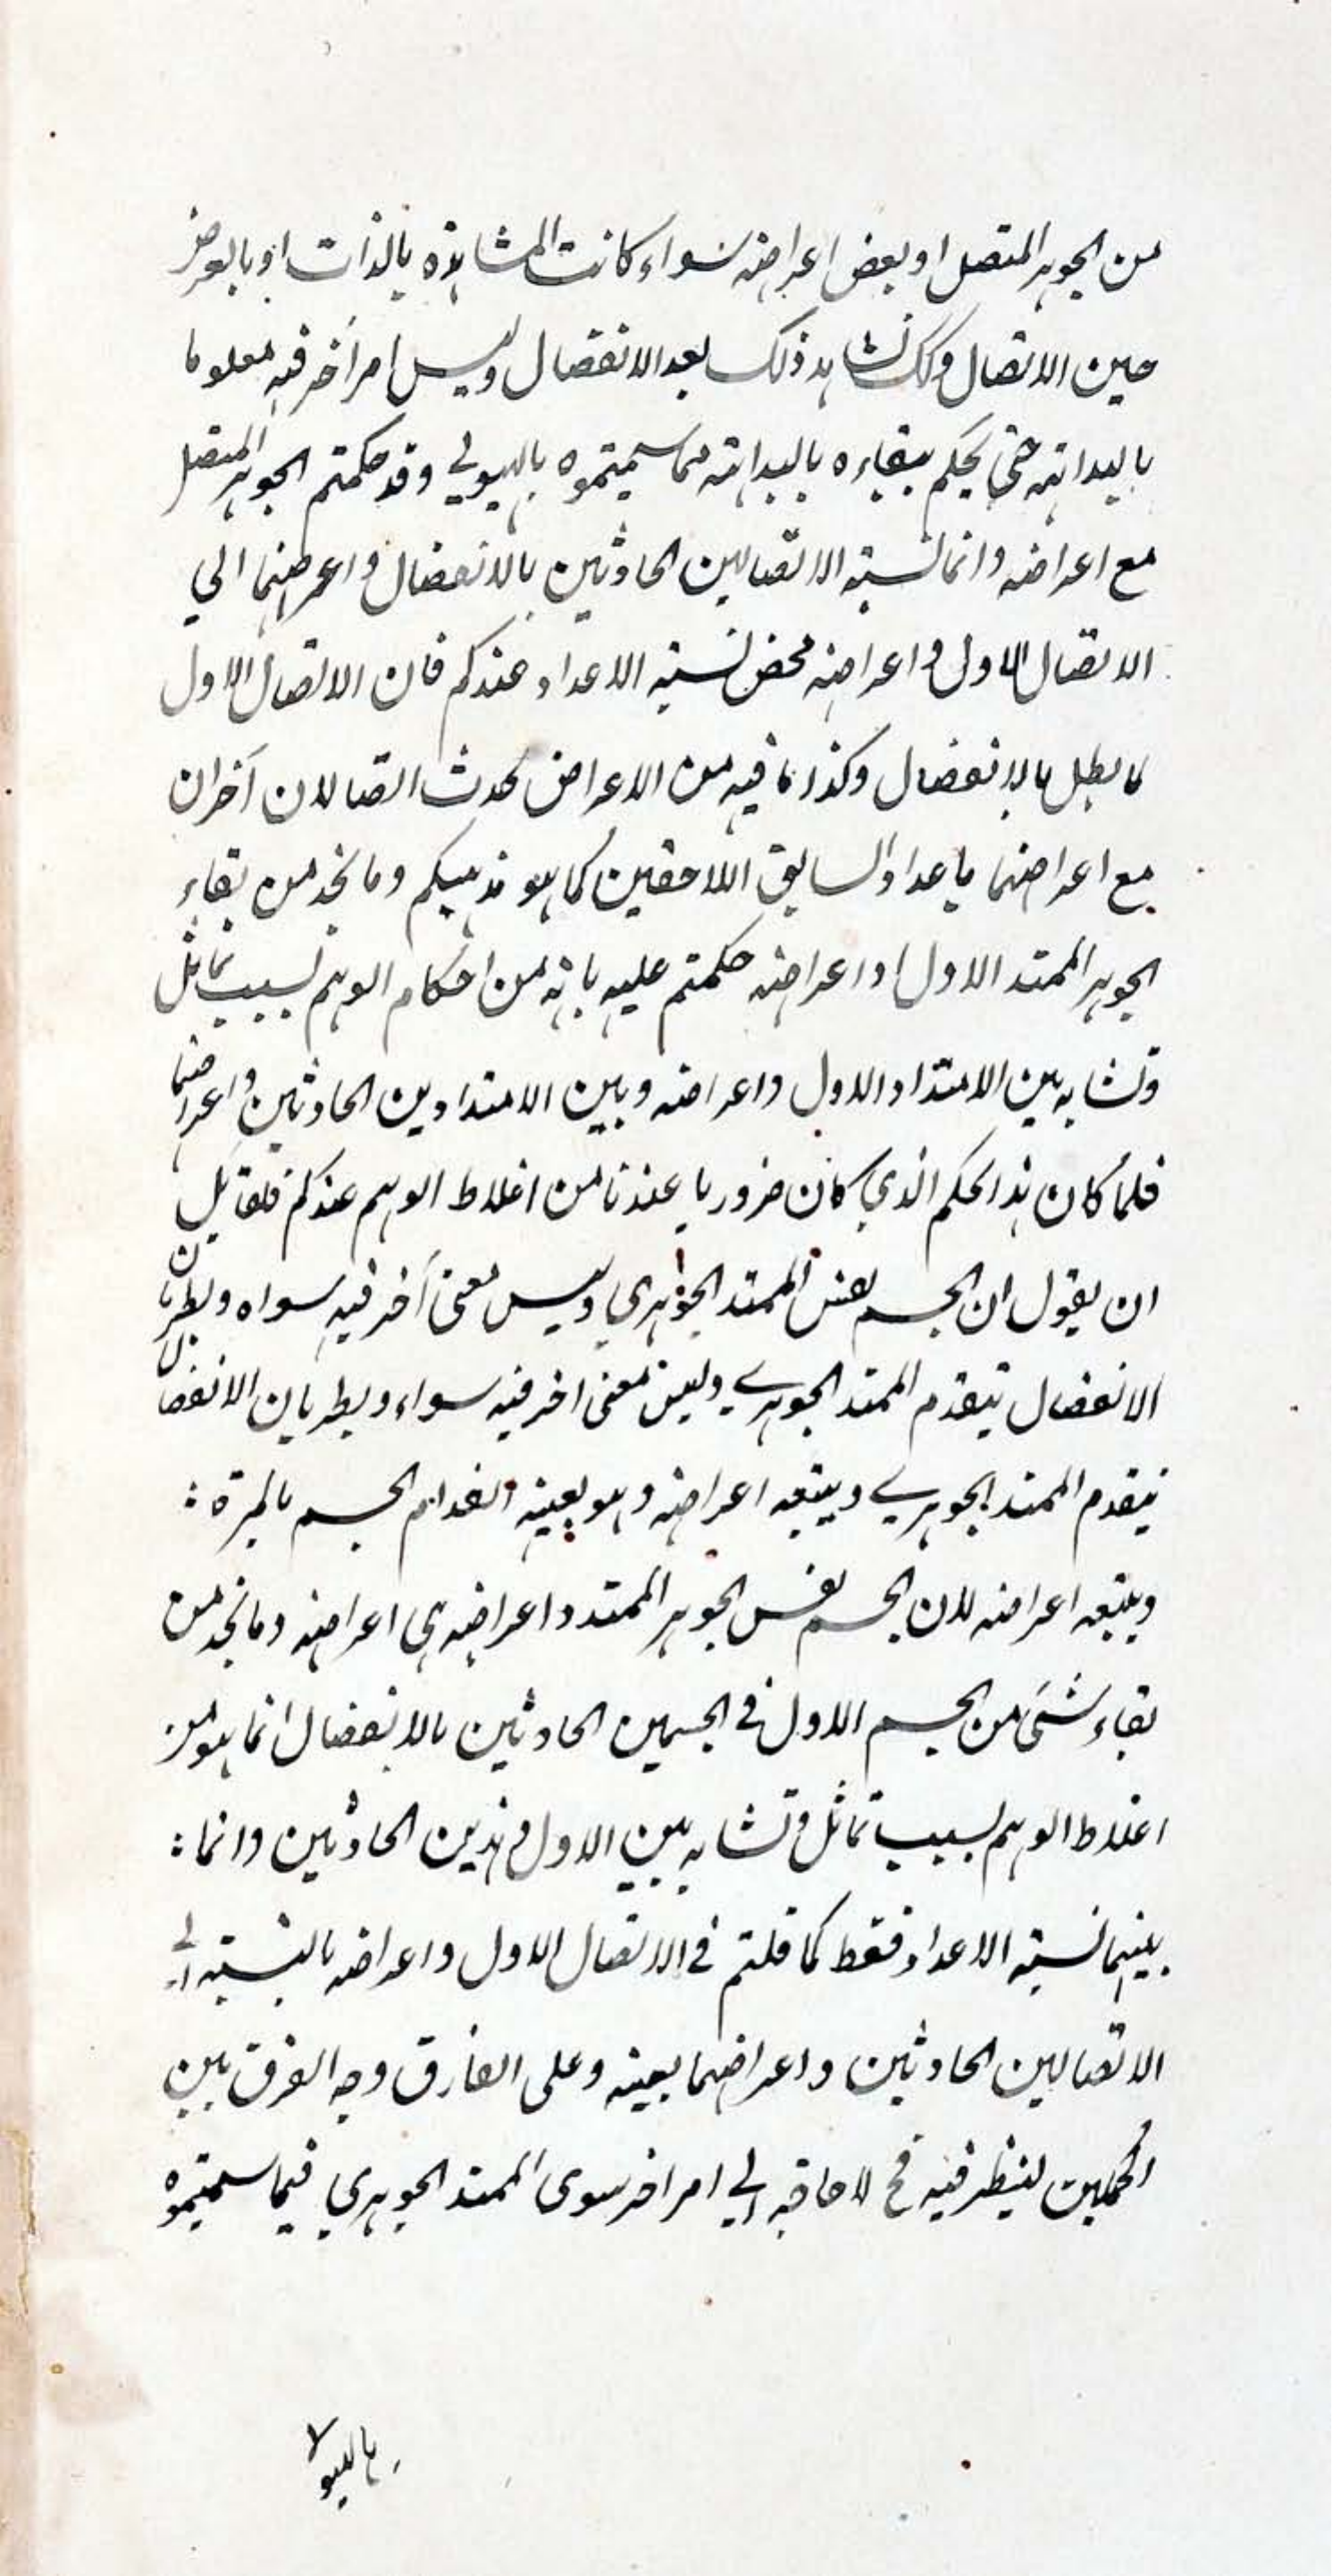 من الجوهر المتصل او بعض اعراضه سواء كانت المشاهدة بالذات او بالعرض
حين الاتصال وكك نشاهد ذلك بعد الانفصال وليس امر آخر فيه معلوما
بالبداهته حتى يحكم ببقاءه بالبداهته مما سميتموه بالهيولي وقد حكمتم الجوهر المتصل
مع اعراضه وانما نسبته الاتصالين الحادثين بالانفصال واعراضهما الي
الاتصال الاول واعراضه محض نسبته الاعداد عندكم فان الاتصال الاول
لما بطل بالانفصال وكذا ما فيه من الاعراض تحدث اتصالان آخران
مع اعراضهما باعداد السابق اللاحقين كما هو مذهبكم وما نجد من بقاء
الجوهر الممتد الاول واعراضه حكمتم عليه بانه من احكام الوهم بسبب تماثل
وتشابه بين الامتداد الاول واعراضه وبين الامتدادين الحادثين واعراضهما
فلما كان هذا الحكم الذي كان ضروريا عندنا من اغلاط الوهم عندكم فلقائل
ان يقول ان الجسم نفس الممتد الجوهري وليس معنى آخر فيه سواه وبطريان
الانفصال ينعدم الممتد الجوهري وليس معنى اخر فيه سواء وبطريان الانفصال
ينعدم الممتد الجوهري ويتبعه اعراضه وهو بعينه انعدام الجسم بالمرة :
ويتبعه اعراضه لان الجسم نفس الجوهر الممتد واعراضه هي اعراضه وما نجد من
بقاء شئ من الجسم الاول في الجسمين الحادثين بالانفصال انما هو من
اغلاط الوهم بسبب تماثل وتشابه بين الاول وهذين الحادثين وانما :
بينهما نسبته الاعداد فقط كما قلتم في الاتصال الاول واعراضه بالنسبته الي
الاتصالين الحادثين واعراضهما بعينه وعلى الفارق وجه الفرق بين
الحكمين لينظر فيه فح لا حاجة الي امر اخر سوى الممتد الجوهري فيما سميتموه
بالهيولا